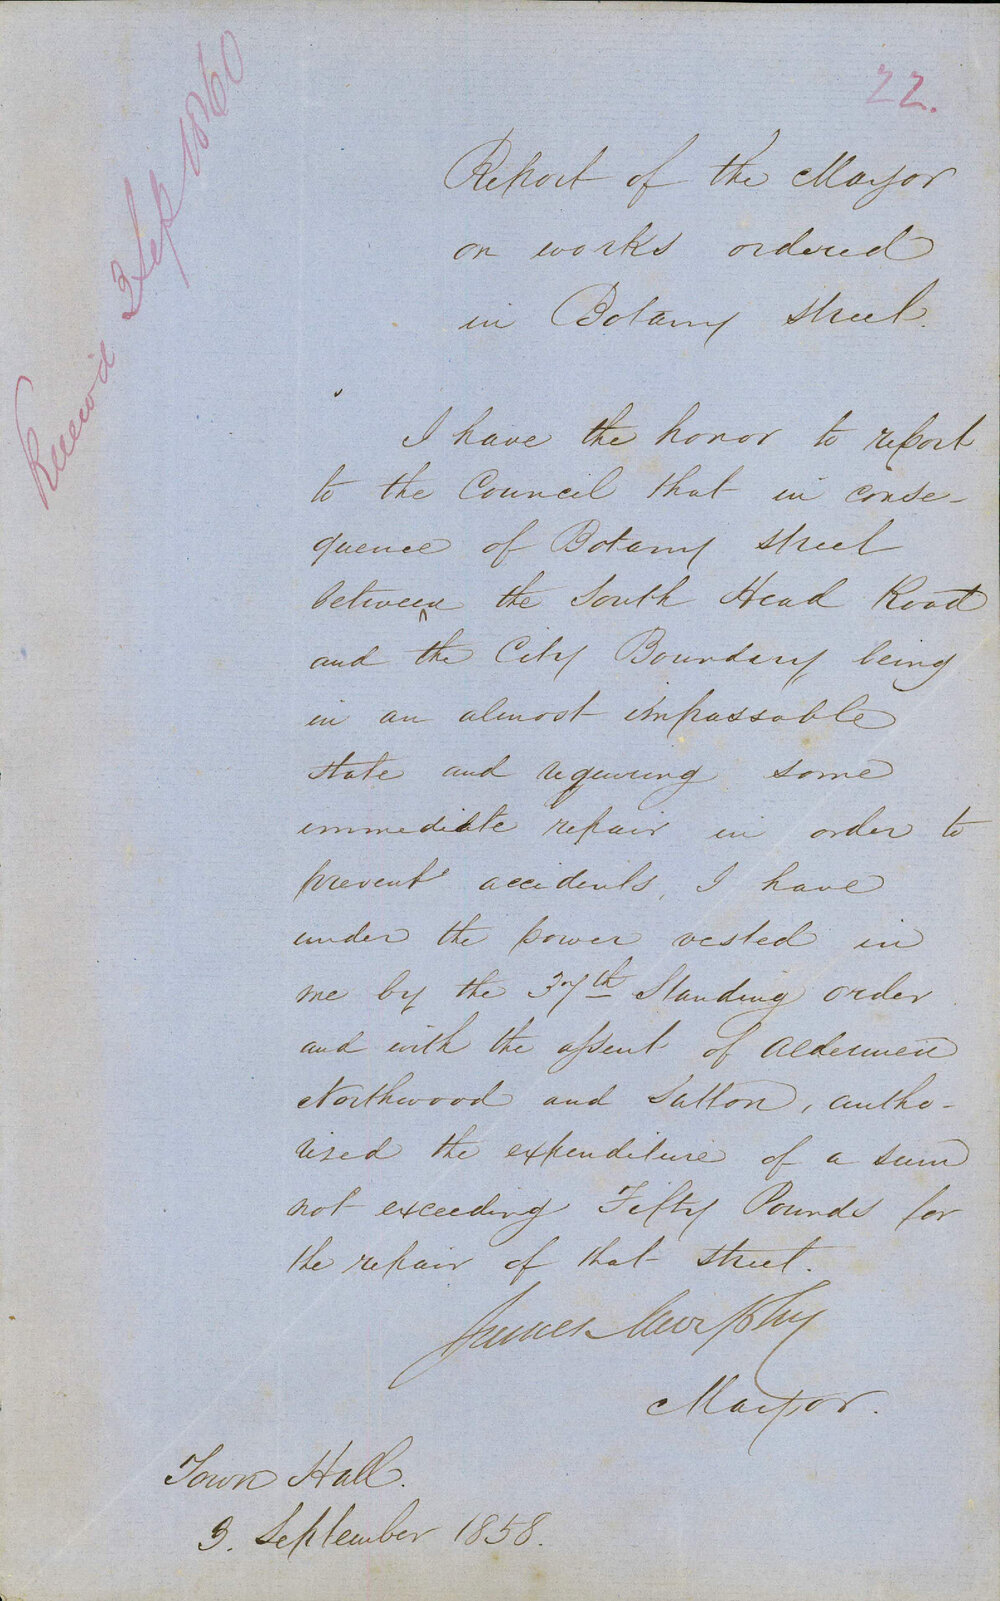 22.
Received 3 Sep 1860
Report of the Mayor
on works ordered
in Botany Street.
I have the honor to report
to the Council that in conse-
quence of Botany Street
between the South Head Road
and the City Boundary being
in an almost impassable
state and requiring some
immediate repair in order to
prevent accidents, I have
under the power vested in
me by the 37th Standing order
and with the assent of Aldermen
Northwood and Sutton, autho-
rised the expenditure of a sum
not exceeding Fifty Pounds for
the repair of that street.
James Murphy
Mayor.
Town Hall.
3. September 1858.